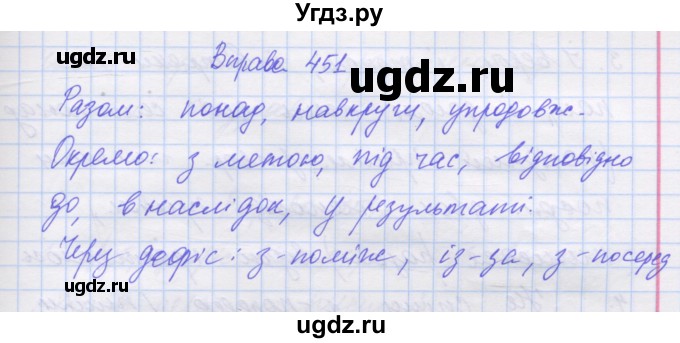 Угдз.ру
ugdz.ru
Вправа 451
ugdz.ru
Разом: понад, навкруги, упродовж.
Окремо: з метою, під час, відповідно
ugdz.ru
до, внаслідок, у результаті.
Через дефіс: з-поміж, із-за, з-посеред
ugdz.ru
ugdz.ru